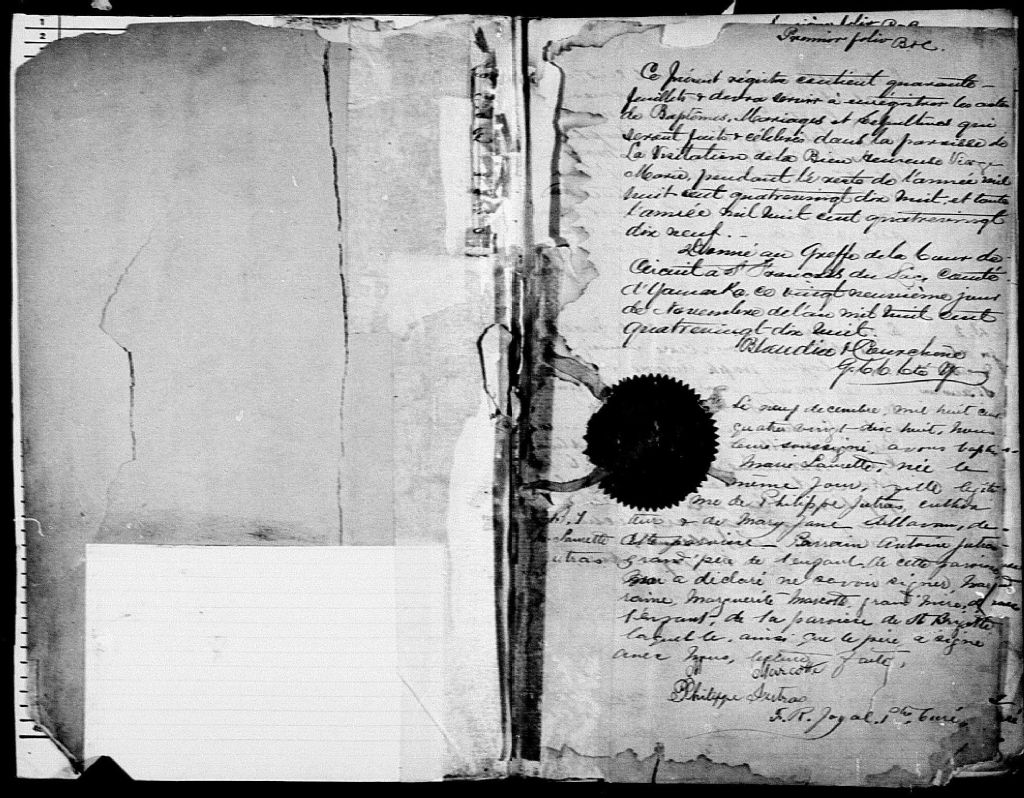 1
2
Premier folio B & C.
Ce présent régistre contient quarante
feuillets & devra servir à enregistrer les actes
de Baptêmes, Mariages et Sépultures qui
seront faits & célébrés dans la paroisse de
La Visitation de la Bien Heureuse Vierge
Marie, pendant le reste de l'année mil
huit cent quatrevingt dix huit, et toute
l'année mil huit cent quatrevingt
dix neuf.
Donné au Greffe de la Cour de
Circuit à St François du Lac, comté
d'Yamaska ce vingt neuvième jour
de Novembre de l'an mil huit cent
quatrevingt dix huit.
G. C. C. Cté Y
Le neuf decembre, mil huit cent
quatre vingt dix huit, nous
Curé soussigné, avons baptisé
Marie Laurette, née le
même jour, fille légiti-
me de Philippe Jutras, cultiva
teur & de Mary Jane, de
B. 1
Laurette
utras
cette paroisse — Parrain Antoine Jutras
grand père de l'enfant, de cette paroisse
a déclaré ne savoir signer, mar
raine, Marguerite Marcotte, grand'mère, de
l'enfant, de la paroisse de St Brigitte
laquelle, ainsi que le père, a signé
avec nous, lecture faite.
Marcotte
Philippe Jutras
F. R. Joyal. Ptre Curé